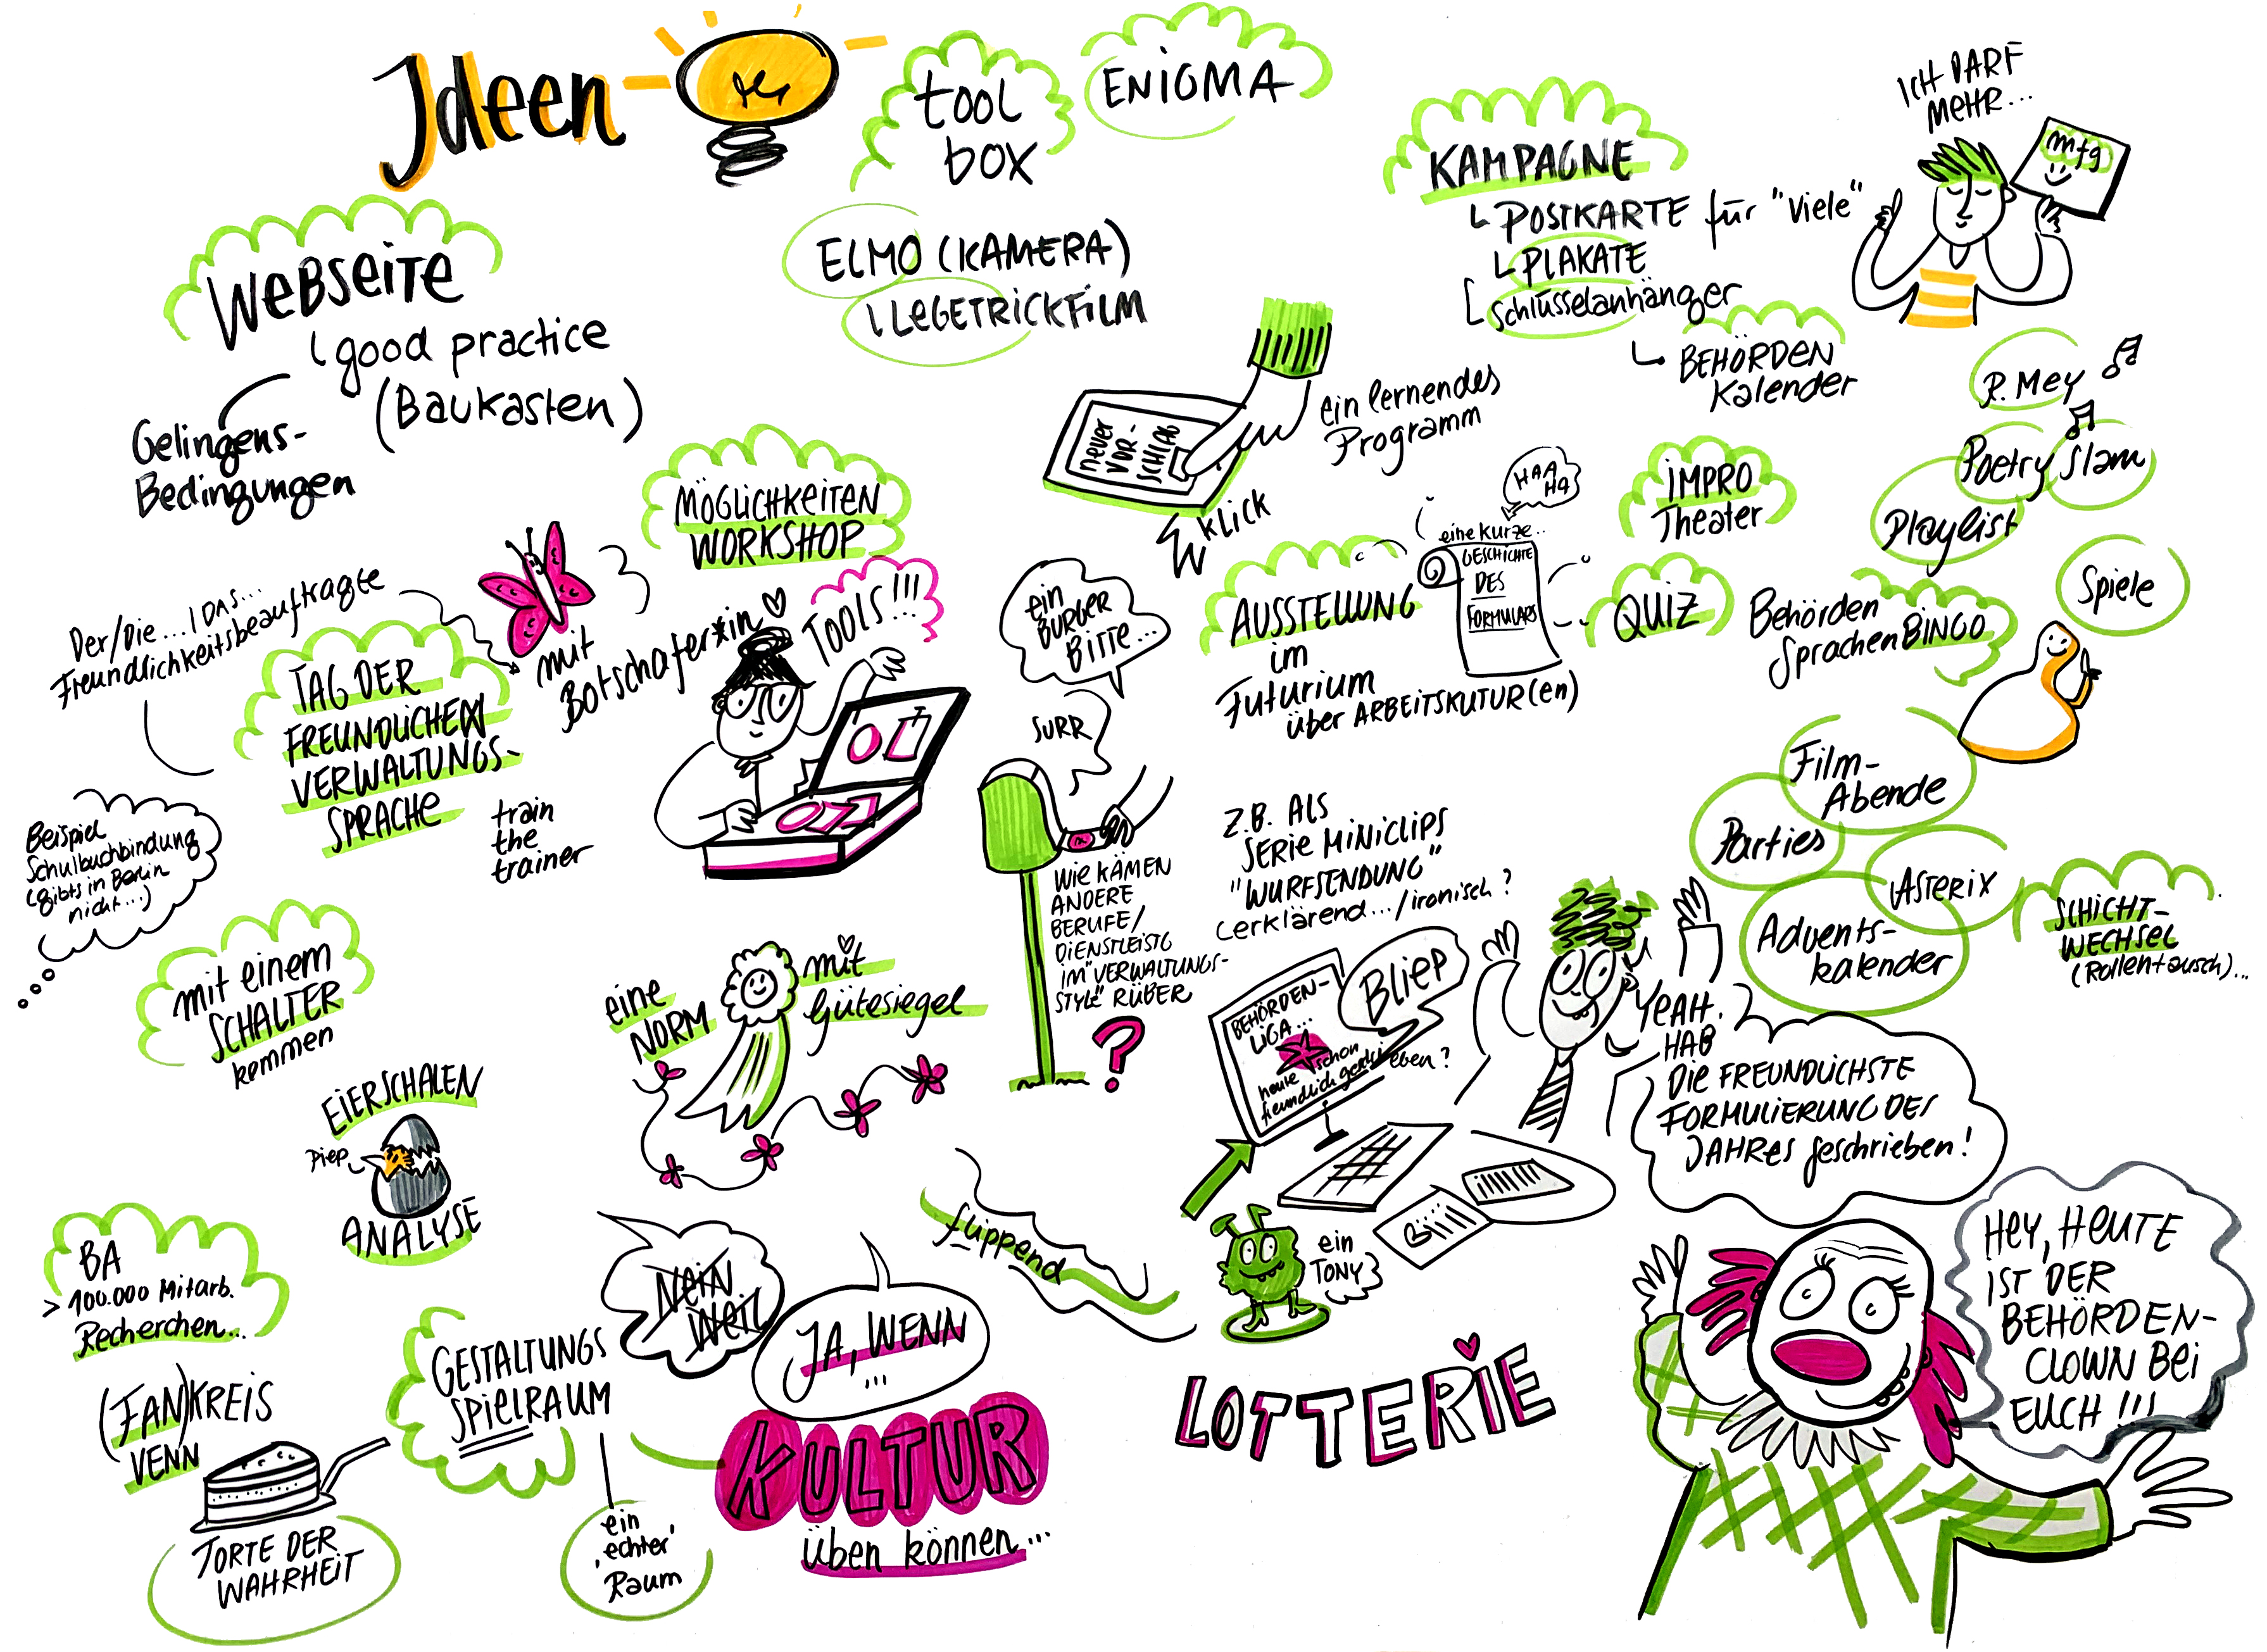 Ideen
tool
box
ENIGMA
WEBSEITE
good practice
(Baukasten)
Gelingens-
Bedingungen
ELMO (KAMERA)
LEGETRICKFILM
KAMPAGNE
POSTKARTE für "Viele"
PLAKATE
Schlüsselanhänger
BEHÖRDEN
Kalender
ICH DARF
MEHR...
mfg
R. Mey
Poetry Slam
Playlist
Spiele
neuer
VOR-
SCHLAG
KLICK
ein lernendes
Programm
MÖGLICHKEITEN
WORKSHOP
TOOLS!!!
Der/Die... / DAS...
Freundlichkeitsbeauftragte
mit
Botschafter*in
TAG DER
FREUNDLICHEN
VERWALTUNGS-
SPRACHE
train
the
trainer
Beispiel
Schulbuchbindung
(gibts in Berlin
nicht...)
mit einem
SCHALTER
kommen
EIERSCHALEN
Piep
ANALYSE
eine
NORM
mit
Gütesiegel
ein
BÜRGER
BITTE...
SURR
WIE KÄMEN
ANDERE
BERUFE/
DIENSTLEISTG
IM "VERWALTUNGS-
STYLE" RÜBER
?
AUSSTELLUNG
im
Futurium
über ARBEITSKUTUR(en)
HAA
HA
eine kurze..
GESCHICHTE
DES
FORMULARS
IMPRO
Theater
QUIZ
Behörden
Sprachen BINGO
Film-
Abende
Parties
ASTERIX
Advents-
kalender
SCHICHT-
WECHSEL
(Rollentausch)...
Z.B. ALS
SERIE MINICLIPS
"WURFSENDUNG"
erklärend.../ironisch?
BEHÖRDEN-
LIGA...
heute schon
freundlich geschrieben?
BLIEP
YEAH.
HAB
DIE FREUNDLICHSTE
FORMULIERUNG DES
JAHRES geschrieben!
ein
TONY
flippend
BA
> 100.000 Mitarb.
Recherchen...
(FAN)KREIS
VENN
TORTE DER
WAHRHEIT
GESTALTUNGS
SPIELRAUM
ein
'echter'
Raum
NEIN
WEIL
JA, WENN
...
KULTUR
üben können...
LOTTERIE
HEY, HEUTE
IST DER
BEHÖRDEN-
CLOWN BEI
EUCH!!!